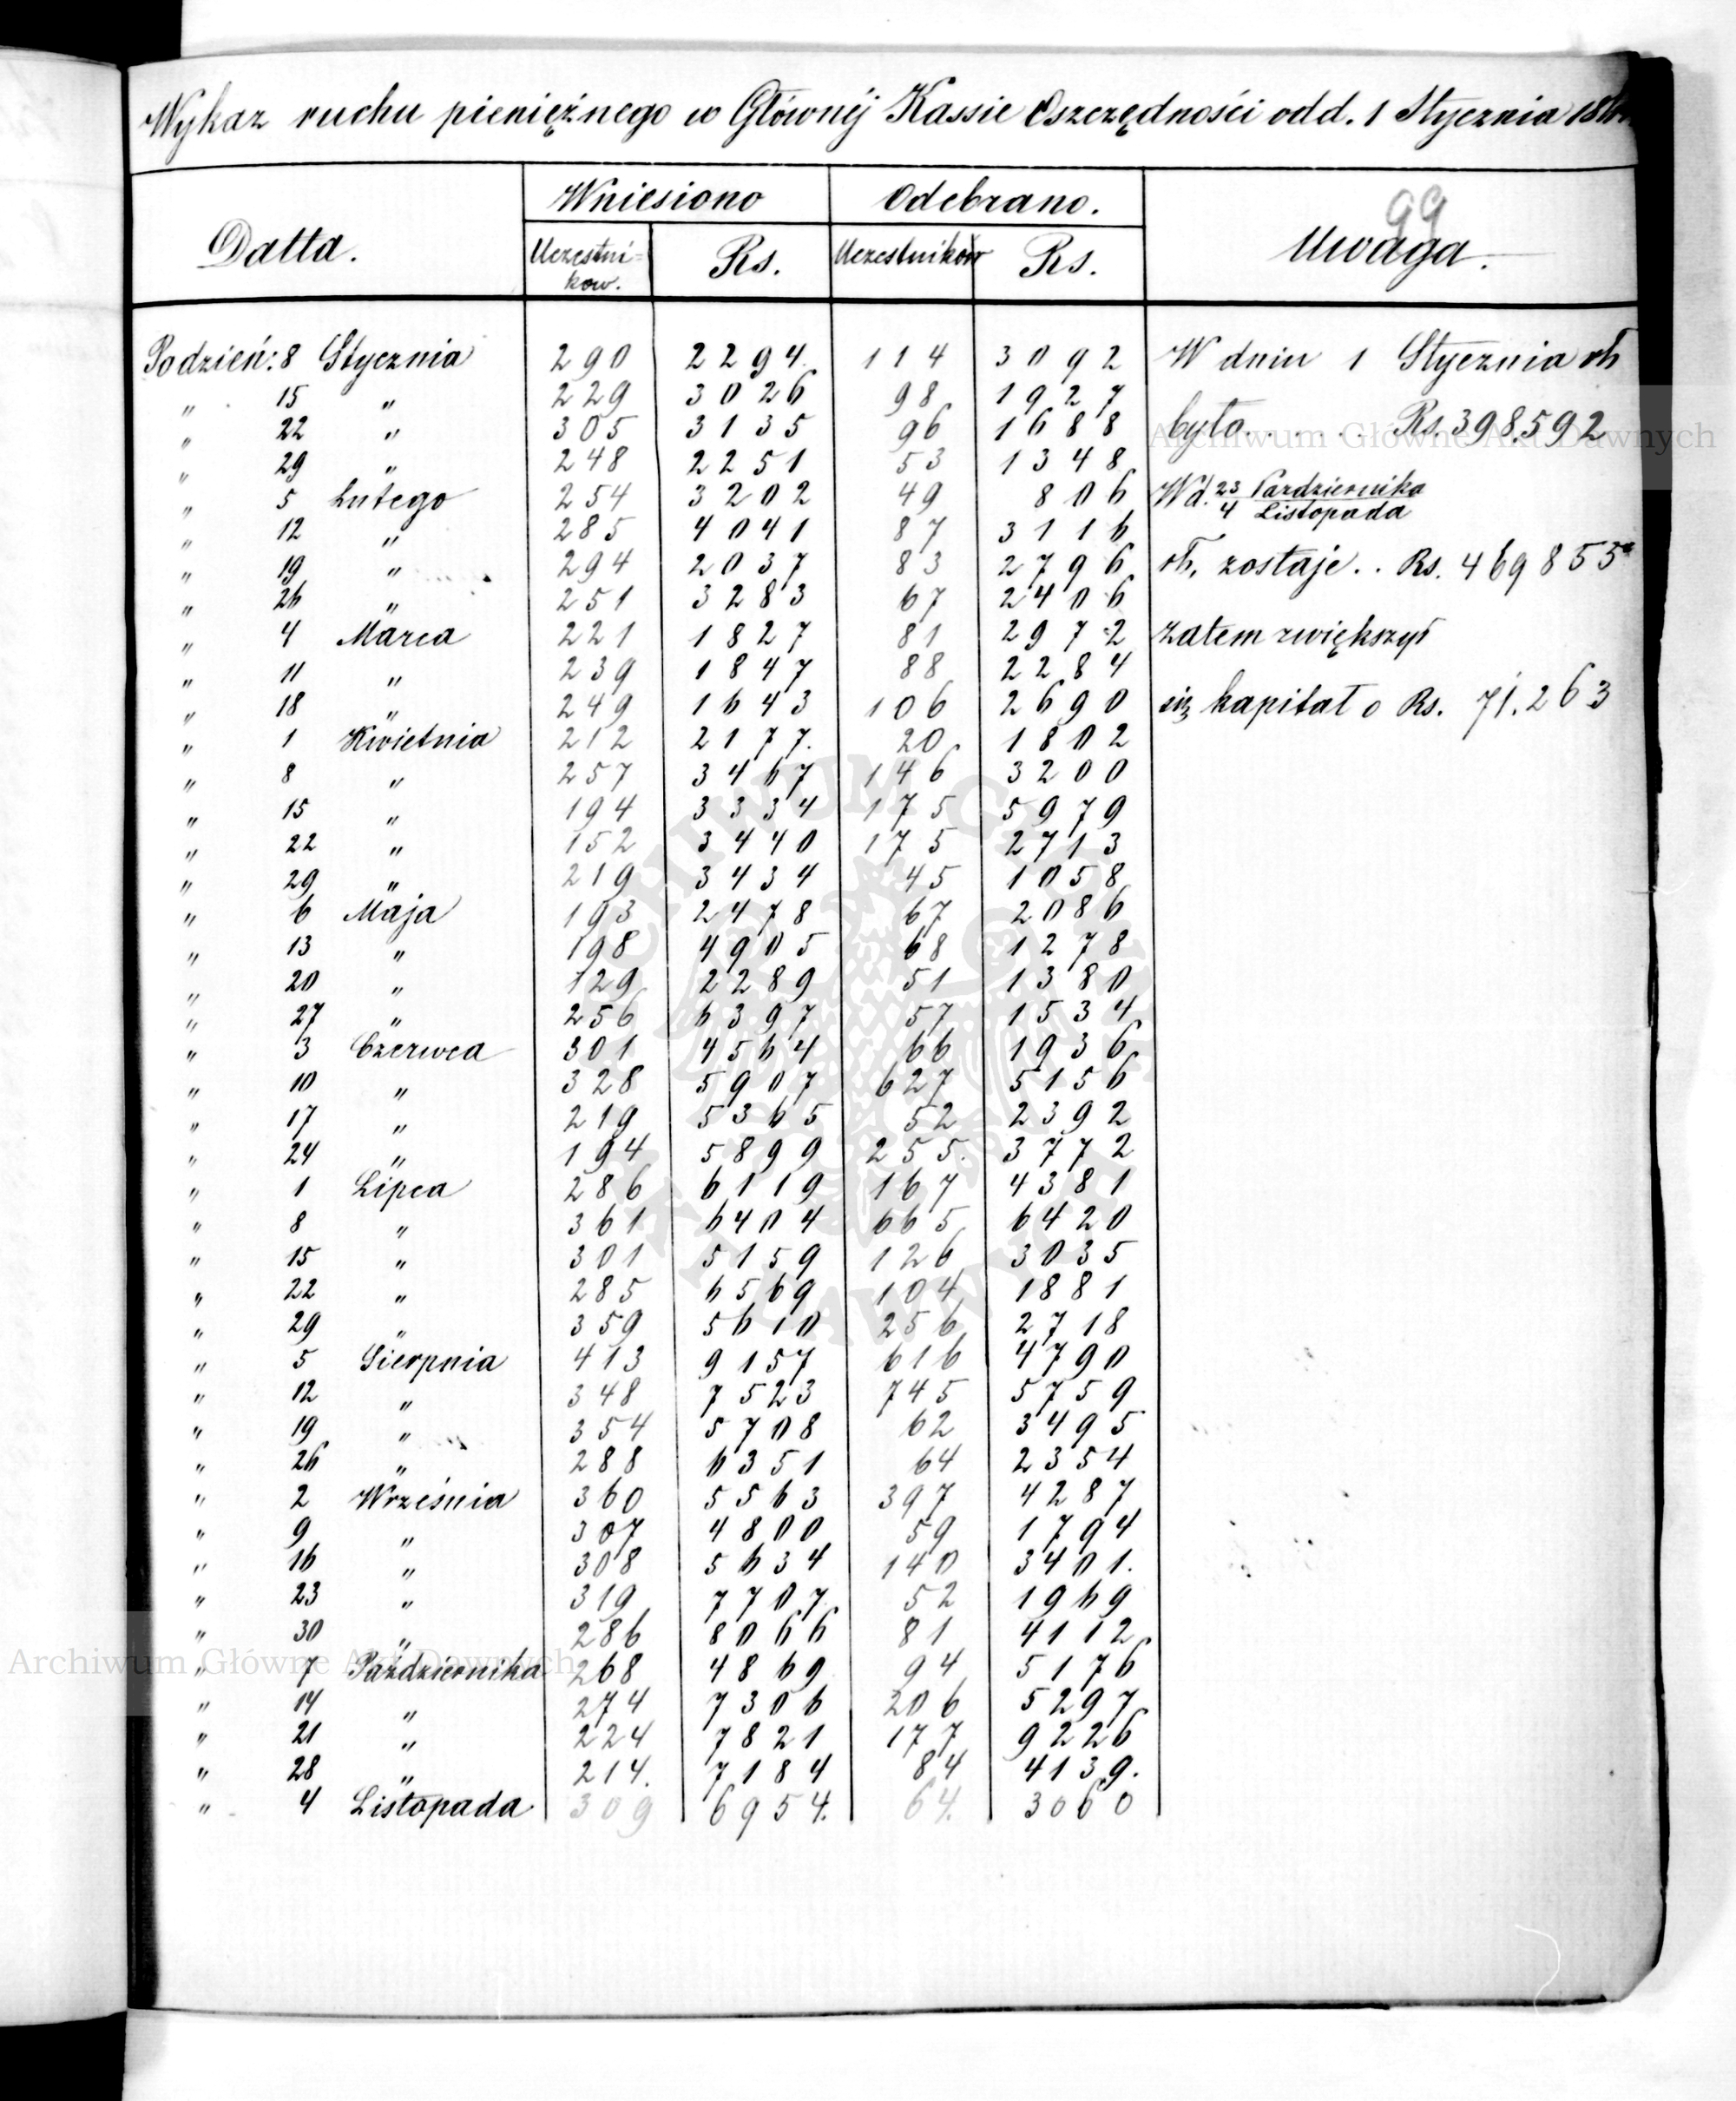 Wykaz ruchu pieniężnego w Głównéj Kassie Oszczędności od d. 1 Stycznia
99
Datta. Wniesiono Odebrano. Uwaga.
Uczestni-
kow. Rs. Uczestników Rs.
Podzień: 8 Stycznia 290 2294. 114 3092 W dniu 1 Stycznia rb
" 15 " 229 3026 98 1927
" 22 " 305 3135 96 1688 było . . . . . . Rs. 398.592
" 29 " 248 2251 53 1348
" 5 Lutego 254 3202 49 806 W d. 23 Pazdziernika
4 Listopada
" 12 " 285 4041 87 3116
" 19 " 294 2037 83 2796 rb. zostaje . . Rs. 469855
" 26 " 251 3283 67 2406
" 4 Marca 221 1827 81 2972 zatem zwiększył
" 11 " 239 1847 88 2284
" 18 " 249 1643 106 2690 się kapitał o Rs. 71.263
" 1 Kwietnia 212 2177. 20 1802
" 8 " 257 3467 146 3200
" 15 " 194 3334 175 5979
" 22 " 152 3440 175 2713
" 29 " 219 3434 45 1058
" 6 Maja 193 2478 67 2086
" 13 " 198 4905 68 1278
" 20 " 129 2289 51 1380
" 27 " 256 6397 57 1534
" 3 Czerwca 301 4564 66 1936
" 10 " 328 5907 627 5156
" 17 " 219 5365 52 2392
" 24 " 194 5899 255. 3772
" 1 Lipca 286 6119 167 4381
" 8 " 361 6404 665 6420
" 15 " 301 5159 126 3035
" 22 " 285 6569 104 1881
" 29 " 359 5610 256 2718
" 5 Sierpnia 413 9157 616 4790
" 12 " 348 7523 745 5759
" 19 " 354 5708 62 3495
" 26 " 288 6351 64 2354
" 2 Września 360 5563 397 4287
" 9 " 307 4800 59 1794
" 16 " 308 5634 140 3401.
" 23 " 319 7707 52 1969
" 30 " 286 8066 81 4112
" 7 Pażdziernika 268 4869 94 5176
" 14 " 274 7306 206 5297
" 21 " 224 7821 177 9226
" 28 " 214. 7184 84 4139.
" 4 Listopada 309 6954. 64. 3060
Archiwum Główne Akt Dawnych
Archiwum Główne Akt Dawnych